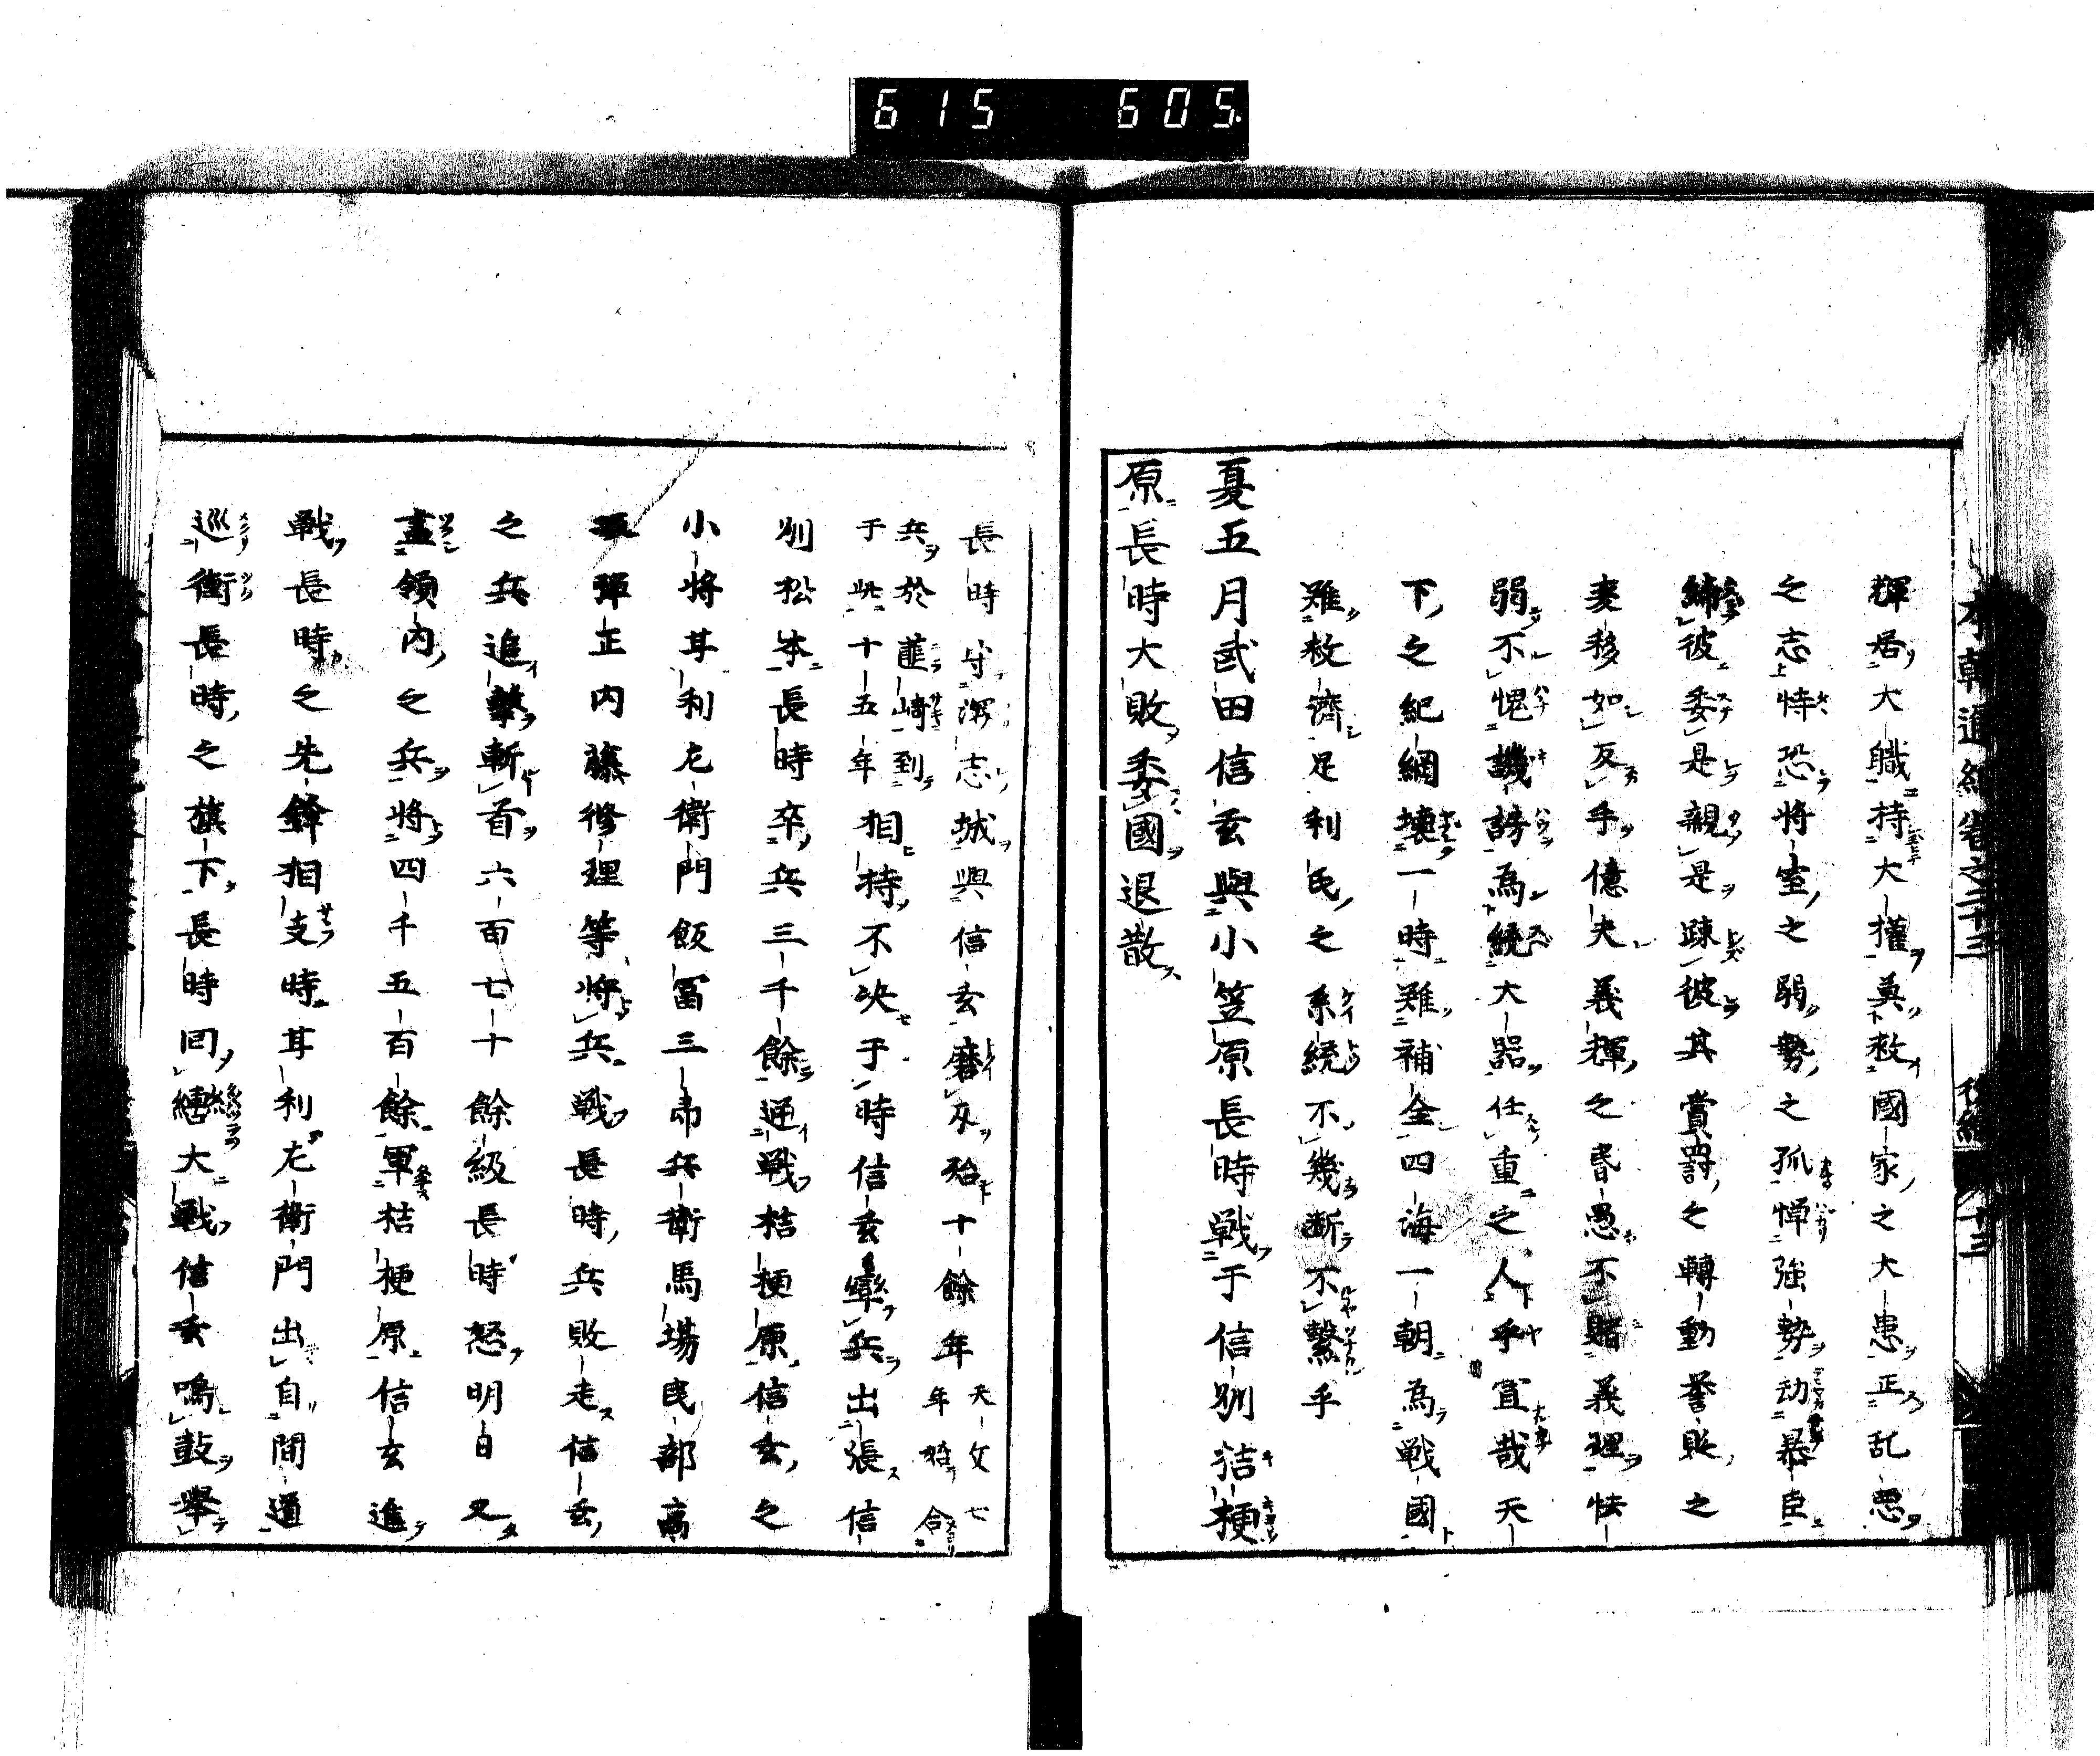 615 605
輝居大職持大權莫救國家之大患正乱思
之志恃恐將室之弱勢之孤憚強勢动暴臣
締彼委是親是疎彼其賞罰之轉動誉貶之
変移如反手億夫義輝之昏愚不賭義理怯
弱不愧譏謗為統大器任重之人乎宜哉天
下之紀綱壊一時難補全四海一朝為戦國
雖救濟足利氏之系統不幾断不繫乎
夏五月武田信玄與小笠原長時戦于信州桔梗
原長時大敗委國退散
長時守深志城與信玄磨刃殆十餘年天文七年雖合
兵於韮崎到于此十五年相持不决于時信玄率兵出張信
州松本長時卒兵三千餘逼戦桔梗原信玄之
小将耳利尤衛門飯冨三郎兵衛馬場民部高
坂弾正内藤修理等將兵戦長時兵敗走信玄
之兵追撃斬首六百七十餘級長時怒明日又
盡領内之兵將四千五百餘軍桔梗原信玄進
戦長時之先鋒相支時耳利尤衛門出自間道
巡衝長時之旗下長時回轡大戦信玄鳴鼓舉